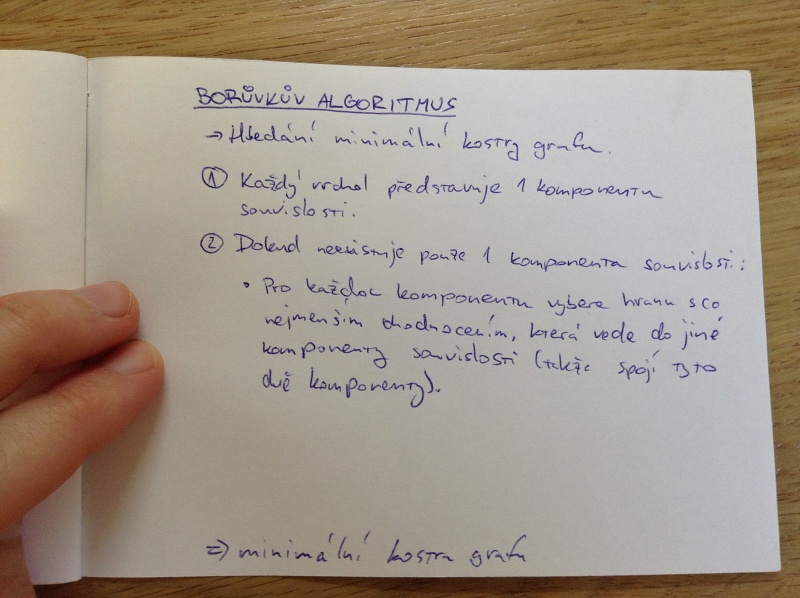 BORŮVKŮV ALGORITMUS
→ Hledání minimální kostry grafu.
① Každý vrchol představuje 1 komponentu
souvislosti.
② Dokud neexistuje pouze 1 komponenta souvislosti:
• Pro každou komponentu vybere hranu s co
nejmenším ohodnocením, která vede do jiné
komponenty souvislosti (takže spojí tyto
dvě komponenty).
⇒ minimální kostra grafu